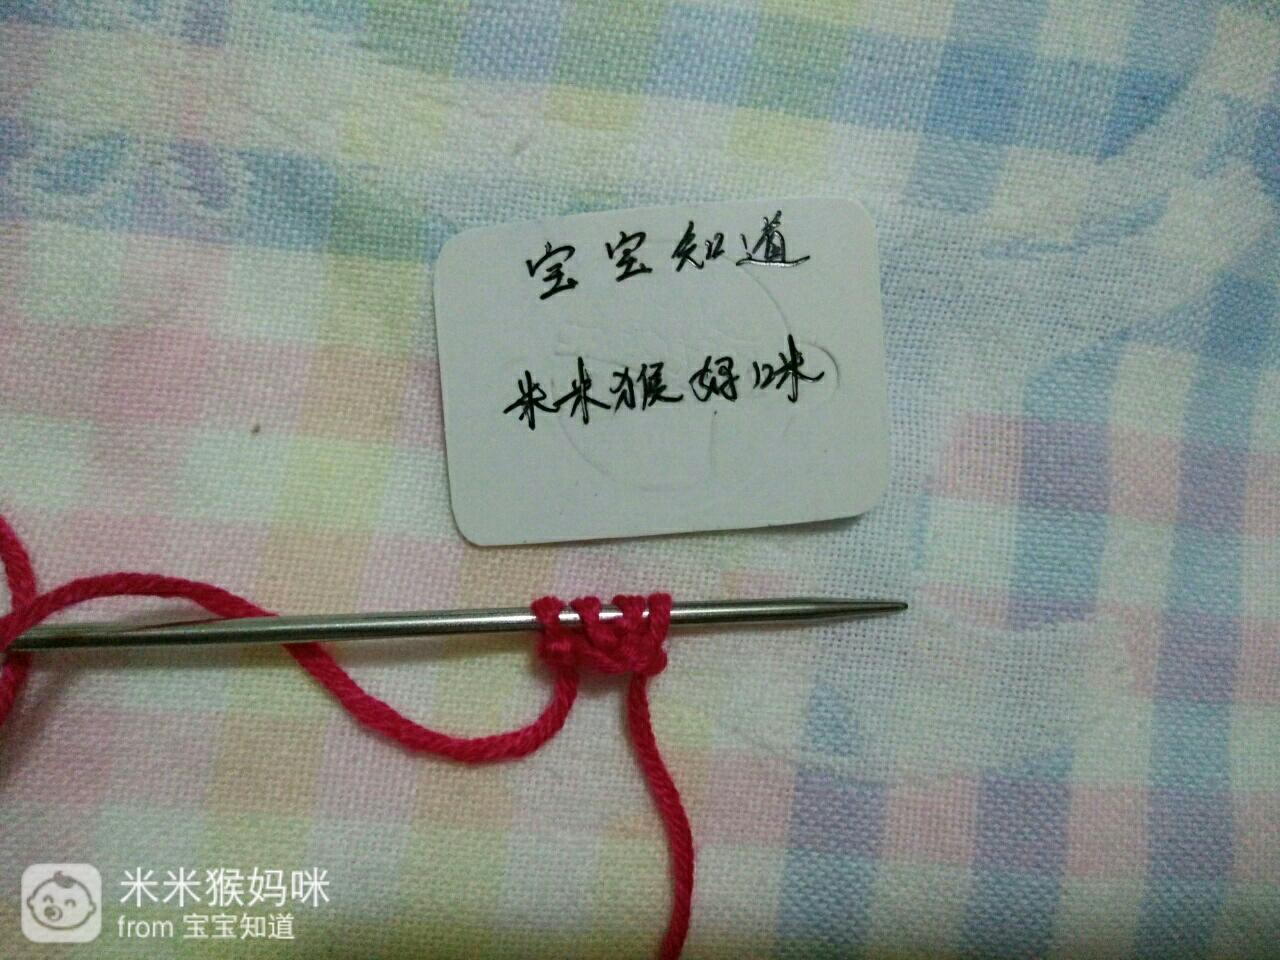 宝宝知道
米米猴妈咪
米米猴妈咪
from 宝宝知道